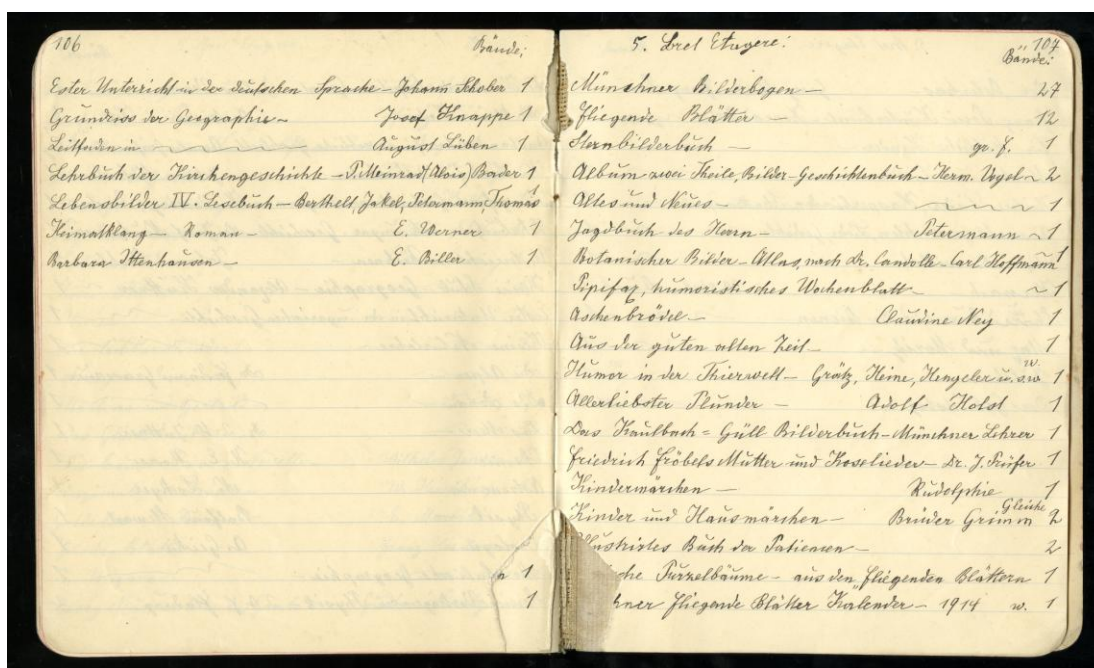 106
Bände:
Ester Unterricht in der deutschen Sprache – Johann Schober 1
Grundriss der Geographie – Josef Knappe 1
Leitfaden in August Lüben 1
Lehrbuch der Kirchengeschichte – P. Meinrad (Alois) Bader 1
Lebensbilder IV. Lesebuch – Berthelt, Jakel, Petermann, Thomas 1
Heimatklang – Roman – E. Werner 1
Barbara Ittenhausen – E. Biller 1
1
1
5. Bret Etagere:
107
Bände:
Münchner Bilderbogen – 27
Fliegende Blätter – 12
Sternbilderbuch – gr. f. 1
Album zwei Theile, Bilder-Geschichtenbuch – Herm. Vogel 2
Altes und Neues – 1
Jagdbuch des Herrn – Petermann 1
Botanischer Bilder-Atlas, nach Dr. Candolle – Carl Hoffmann 1
Pipifax, humoristisches Wochenblatt – 1
Aschenbrödel – Claudine Ney 1
Aus der guten alten Zeit – 1
Humor in der Thierwelt – Grätz, Heine, Hengeler u. s. w. 1
Allerliebster Plunder – Adolf Holst 1
Das Kaulbach = Güll Bilderbuch – Münchner Lehrer 1
Friedrich Fröbels Mutter und Koselieder – Dr. J. Prüfer 1
Kindermärchen – Rudolphie 1
Kinder und Hausmärchen – Brüder Grimm Gleiche 2
llustrirtes Buch der Patiencen – 2
che Purzelbäume – aus den „Fliegenden Blättern 1
hner Fliegende Blätter Kalender – 1914 w. 1